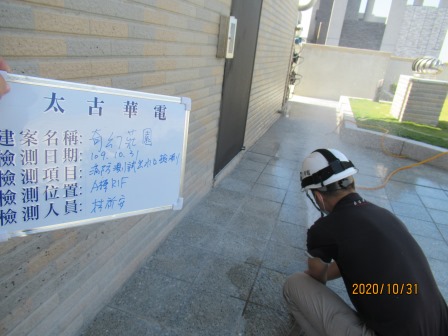 太古華電
建案名稱: 奇幻莊園
檢測日期: 109.10.31
檢測項目: 消防測試出水口檢測
檢測位置: A棟R1F
檢測人員:
2020/10/31